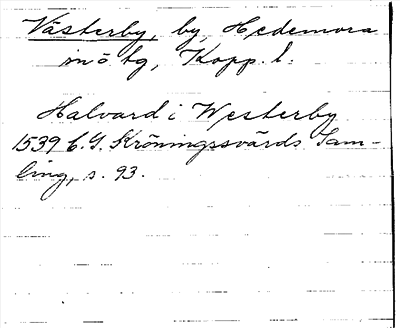 Västerby, by, Hedemora
sn o tg, Kopp. l.
Halvard i Westerby
1539 C. G. Kröningssvärds Sam-
ling, s. 93.